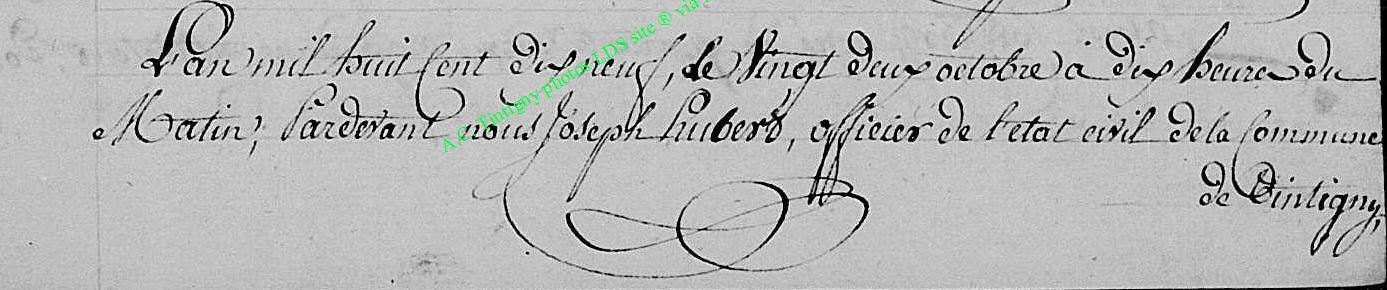 L'an mil huit Cent dix neuf, le Vingt deux octobre à dix heures du
Matin, Pardevant nous Joseph hubert, officier de l'etat civil de la Commune
de Tintigny,
A.C. Tintigny photos LDS site ® via